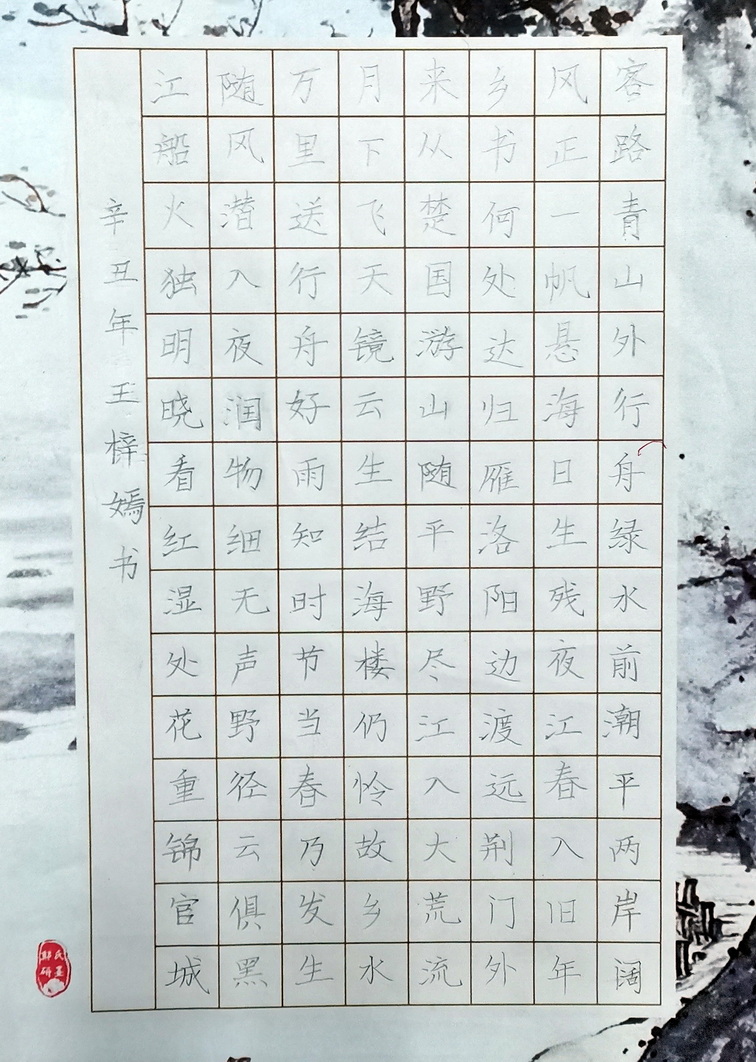 客路青山外行舟绿水前潮平两岸阔
风正一帆悬海日生残夜江春入旧年
乡书何处达归雁洛阳边渡远荆门外
来从楚国游山随平野尽江入大荒流
月下飞天镜云生结海楼仍怜故乡水
万里送行舟好雨知时节当春乃发生
随风潜入夜润物细无声野径云俱黑
江船火独明晓看红湿处花重锦官城
辛丑年王梓嫣书